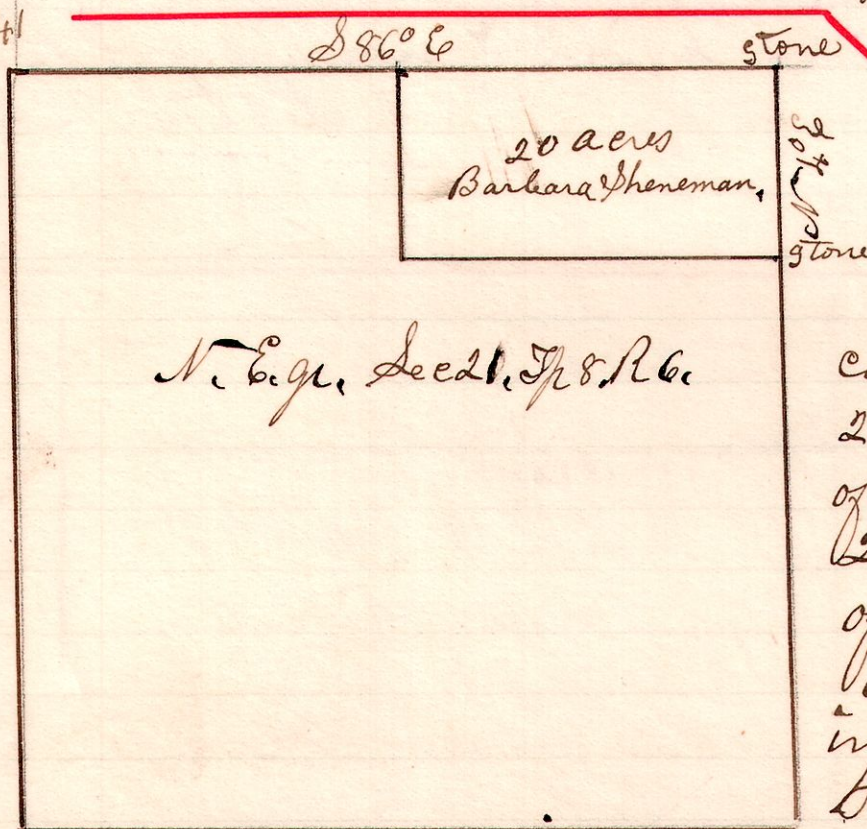 S 86° E
stone
20 acres
Barbara Sheneman.
N 4° E
stone
N. E. qr. Sec 21. Tp 8. R 6.
2
of
2
of
in